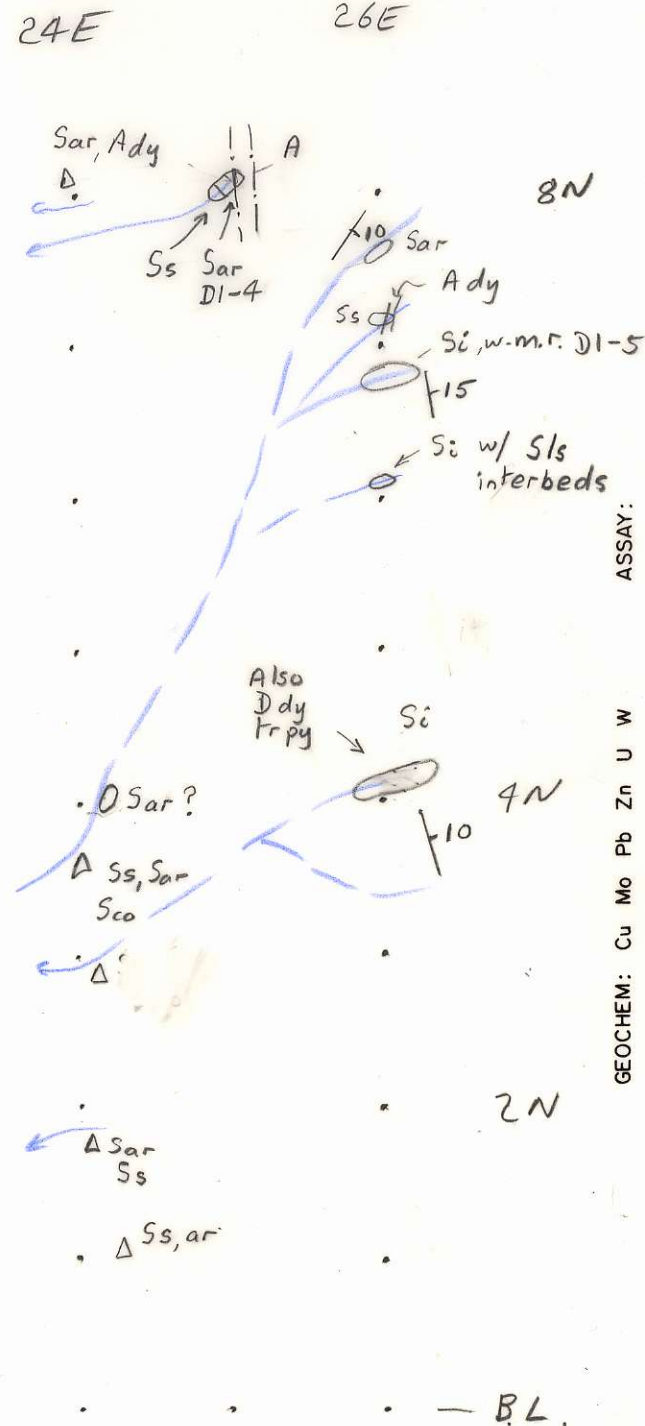 24E
26E
Sar, Ady
A
8N
Ss
Sar
D1-4
10
Sar
Ady
Ss
Si, w-m.r. D1-5
15
Si w/ Sls
interbeds
ASSAY:
Also
Ddy
tr py
Si
4N
Sar?
10
Ss, Sar
Sco
GEOCHEM: Cu Mo Pb Zn U W
2N
Sar
Ss
Ss, ar
— B.L.